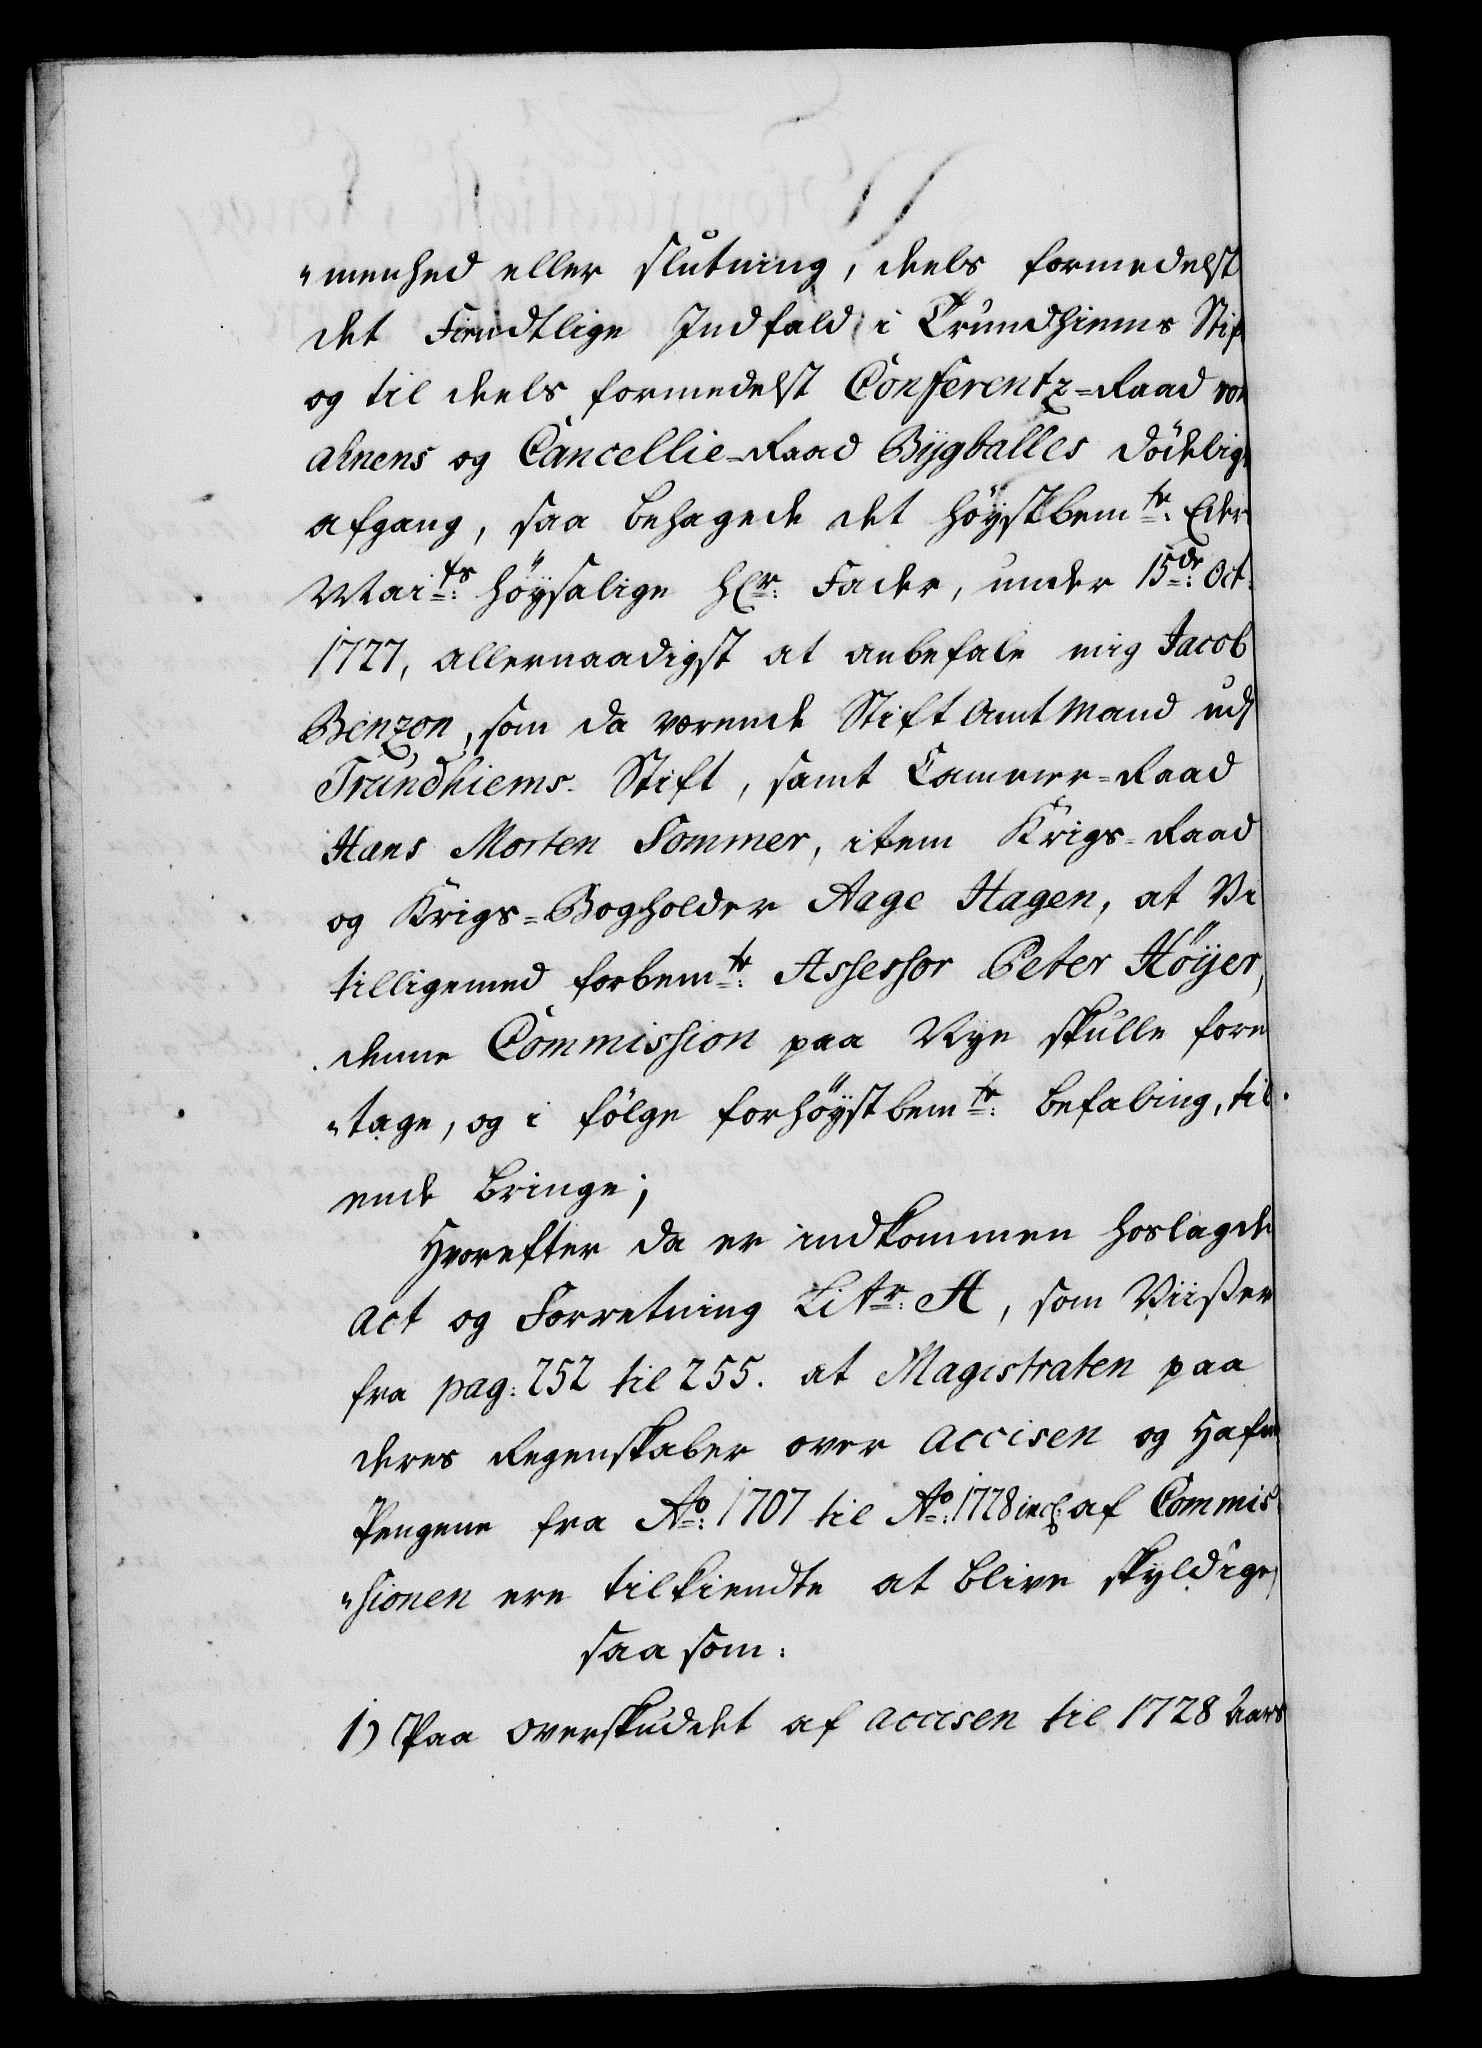 "menhed eller slutning, deels formedelst
det Fiendtlige Indfald i Trundhiems Stif
og til deels formedelst Conferentz=Raad von
Ahnens og Cancellie=Raad Bÿgballes dödelig
afgang, saa behagede det höÿstbemte: Eders
Maits: höÿsalige Hr: Fader, under 15de: Oct:
1727, allernaadigst at anbefale mig Jacob
Benzon, som da værende Stift Amt Mand udj
Trundhiems Stift, samt Cammer=Raad
Hans Morten Sommer, item Krigs=Raad
og Krigs=Bogholder Aage Hagen, at Vi
tilligemed forbemte: Assessor Peter Höÿer,
denne Commission paa Nye skulle fore
"tage, og i fölge forhöÿstbemte: befaling, til
ende bringe;
Hvorefter da er indkommen hoslagde
Act og Forretning Litr: A, som Viißer
fra pag: 252 til 255. at Magistraten paa
deres Regenskaber over Accisen og Hafne
Pengene fra Ao: 1707 til Ao: 1728 incl: af Commis
"sionen ere tilkiendte at blive skyldige,
saasom:
1) Paa Overskuddet af Accisen til 1728 Aars